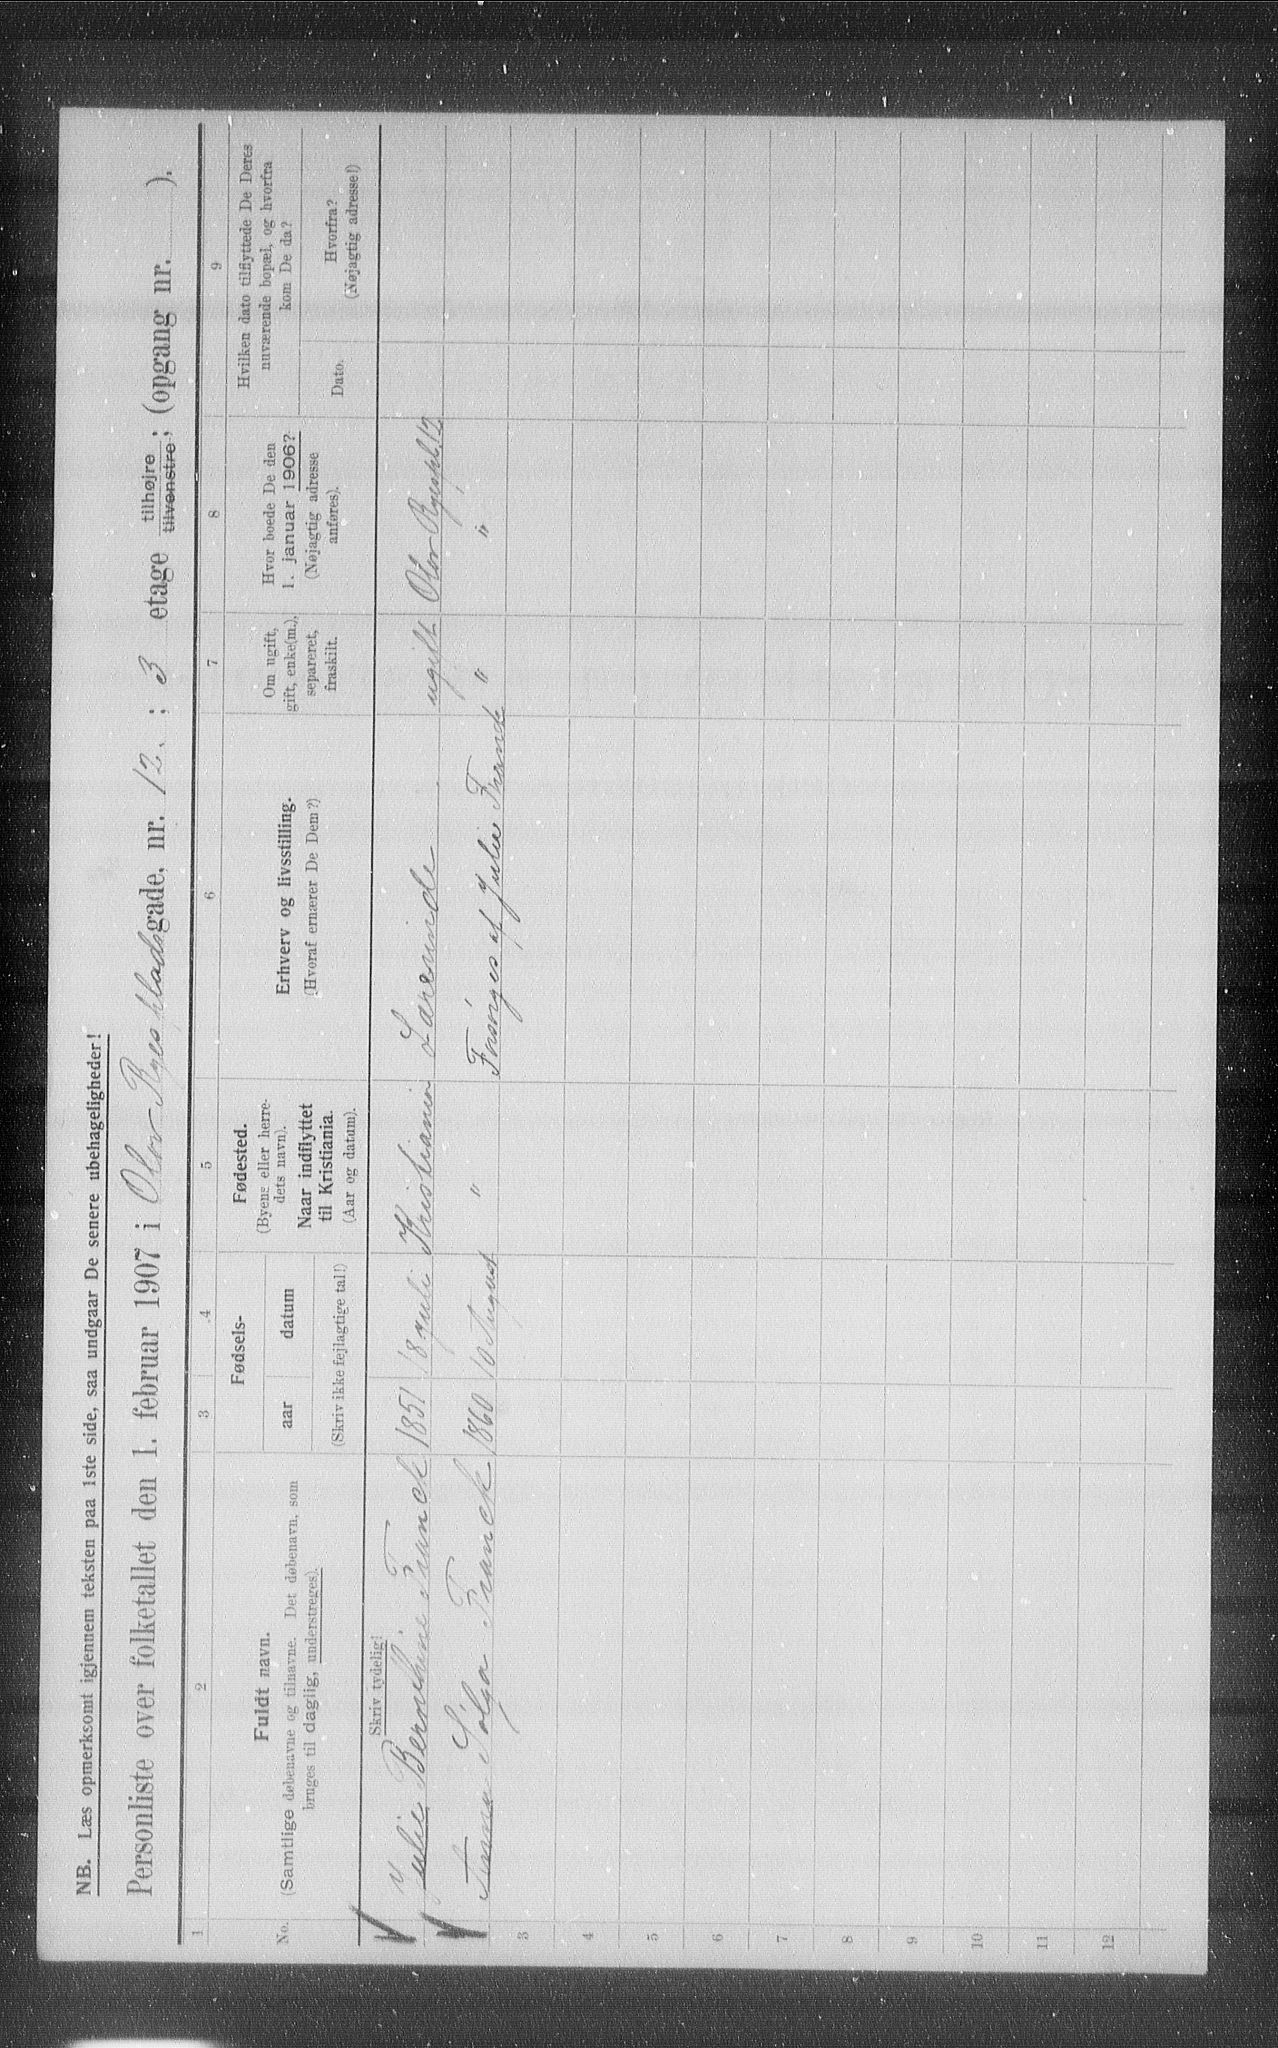 NB. Læs opmerksomt igjennem teksten paa 1ste side, saa undgaar De senere ubehageligheder!
Personliste over folketallet den 1. februar 1907 i Olav Ryes plads gade, nr. 12. ; 3 etage tilhøjre tilvenstre ; (opgang nr. ).
1 2 3 4 5 6 7 8 9
No.
Fuldt navn.
(Samtlige døbenavne og tilnavne. Det døbenavn, som
bruges til daglig, understreges).
Fødsels-
aar datum
(Skriv ikke fejlagtige tal!)
Fødested.
(Byens eller herre-
dets navn).
Naar indflyttet
til Kristiania.
(Aar og datum).
Erhverv og livsstilling.
(Hvoraf ernærer De Dem?)
Om ugift,
gift, enke(m.),
separeret,
fraskilt.
Hvor boede De den
1. januar 1906?
(Nøjagtig adresse
anføres).
Hvilken dato tilflyttede De Deres
nuværende bopæl, og hvorfra
kom De da?
Dato.
Hvorfra?
(Nøjagtig adresse!)
Skriv tydelig!
Julie Franck 1851 18 Juli Kristiania Lærerinde ugift Olav Ryespl. 12
Franck 1860 10 August " Forsørges af Julie Franck " "
3
4
5
6
7
8
9
10
11
12